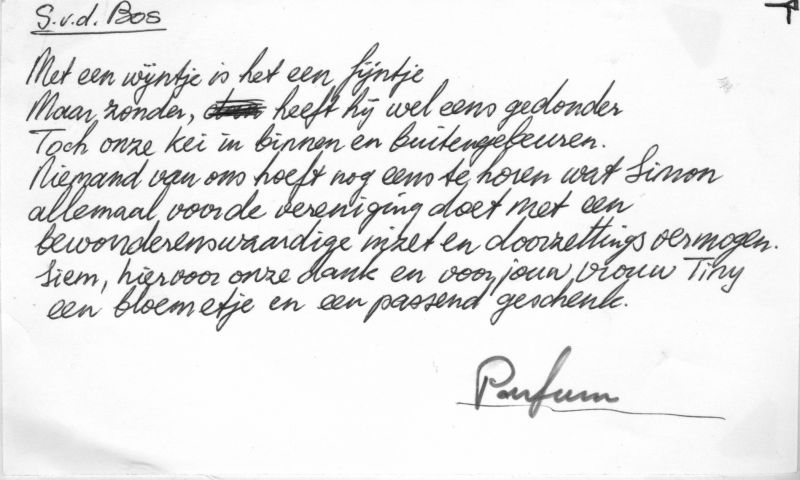 S.v.d. Bos
Met een wijntje is het een fijntje
Maar zonder, heeft hij wel eens gedonder
Toch onze kei in binnen en buitengebeuren.
Niemand van ons hoeft nog eens te horen wat Simon
allemaal voor de vereniging doet met een
bewonderenswaardige inzet en doorzettings vermogen.
Siem, hiervoor onze dank en voor jouw vrouw Tiny
een bloemetje en een passend geschenk.
Parfum